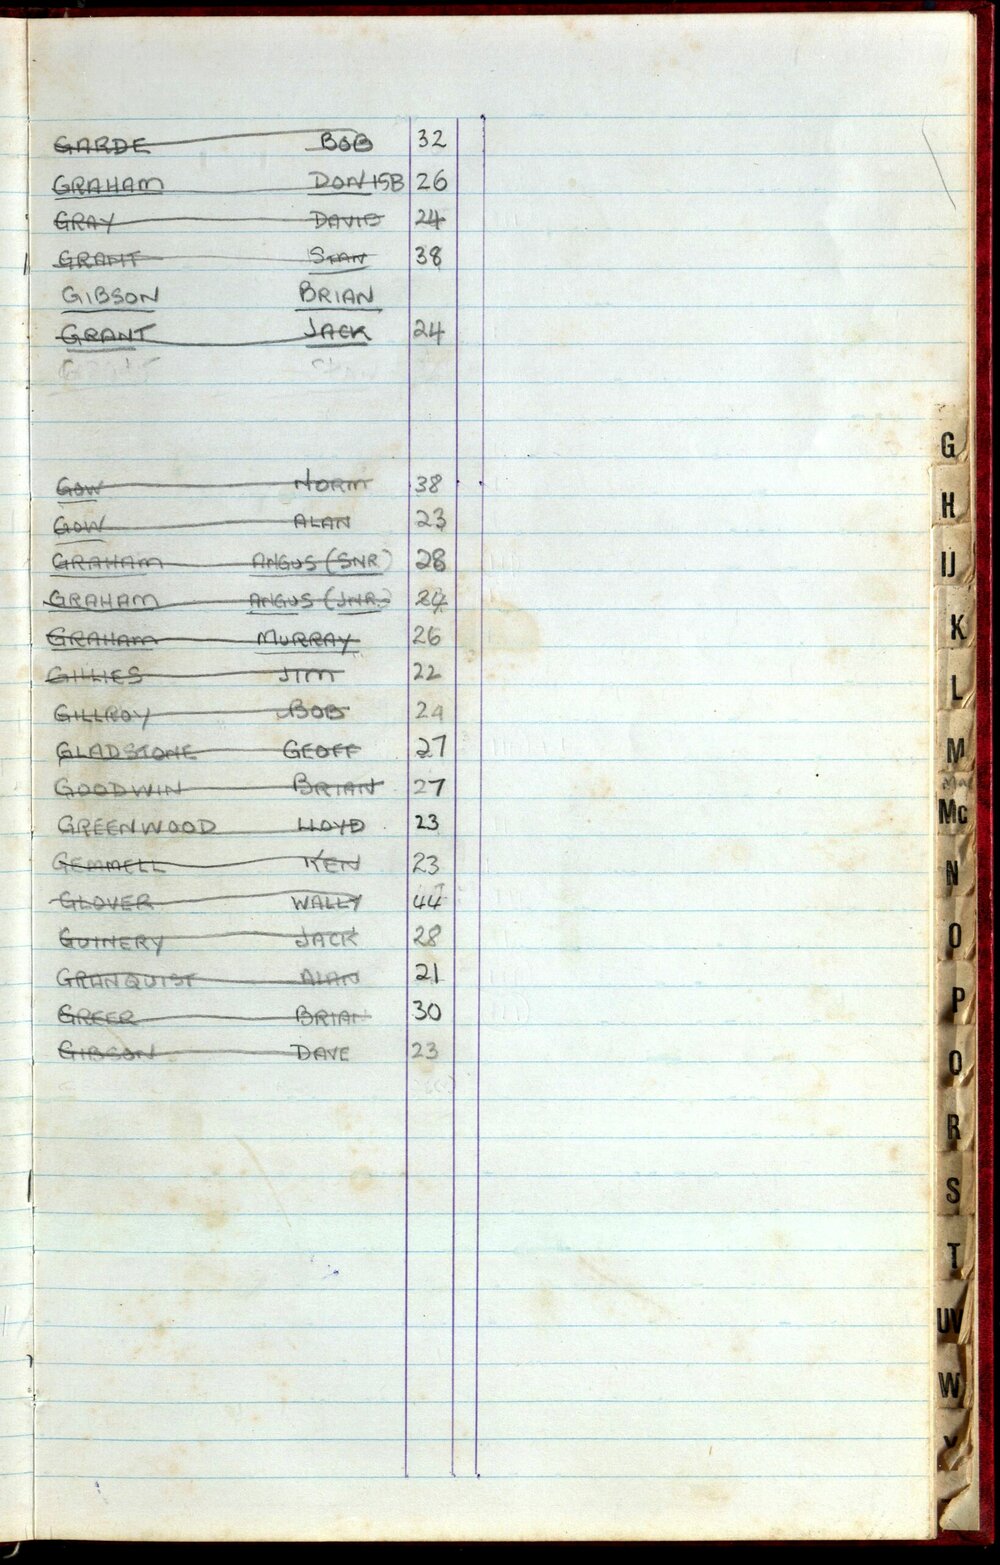 GARDE BOB 32
GRAHAM DON 15B 26
GRAY DAVID 24
GRANT STAN 38
GIBSON BRIAN
GRANT JACK 24
GOW NORM 38
GOW ALAN 23
GRAHAM ANGUS (SNR) 28
GRAHAM ANGUS (JNR) 24
GRAHAM MURRAY 26
GILLIES JIM 22
GILLROY BOB 24
GLADSTONE GEOFF 27
GOODWIN BRIAN 27
GREENWOOD LLOYD 23
GEMMELL KEN 23
GLOVER WALLY 44
GUINERY JACK 28
GRANQUIST ALAN 21
GREER BRIAN 30
GIBSON DAVE 23
G
H
IJ
K
L
M
Mc
N
O
P
Q
R
S
T
UV
W
Y